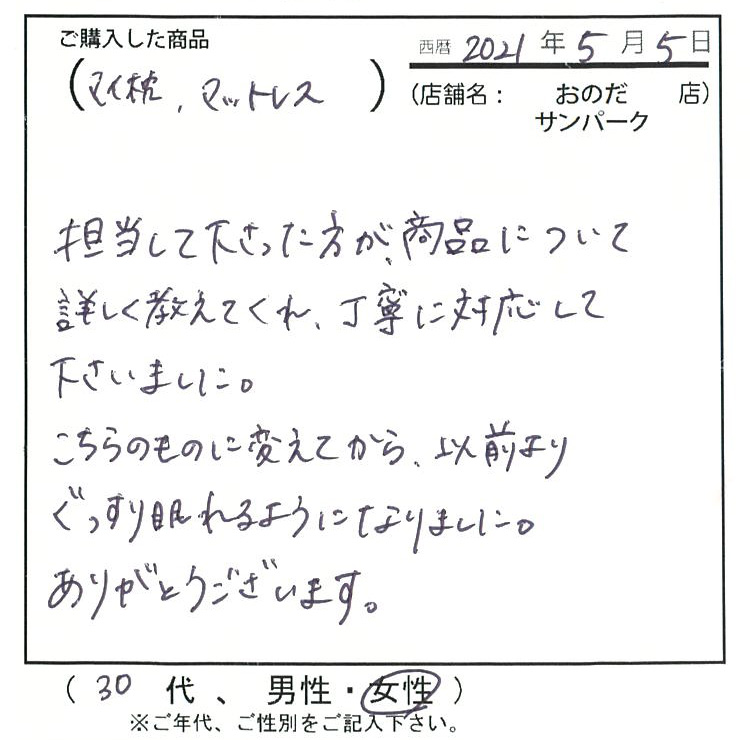 ご購入した商品
西暦 2021 年 5 月 5 日
(マイ枕、マットレス)
(店舗名: おのだ 店)
サンパーク
担当して下さった方が、商品について
詳しく教えてくれ、丁寧に対応して
下さいました。
こちらのものに変えてから、以前より
ぐっすり眠れるようになりました。
ありがとうございます。
( 30 代 、 男性・女性 )
※ご年代、ご性別をご記入下さい。